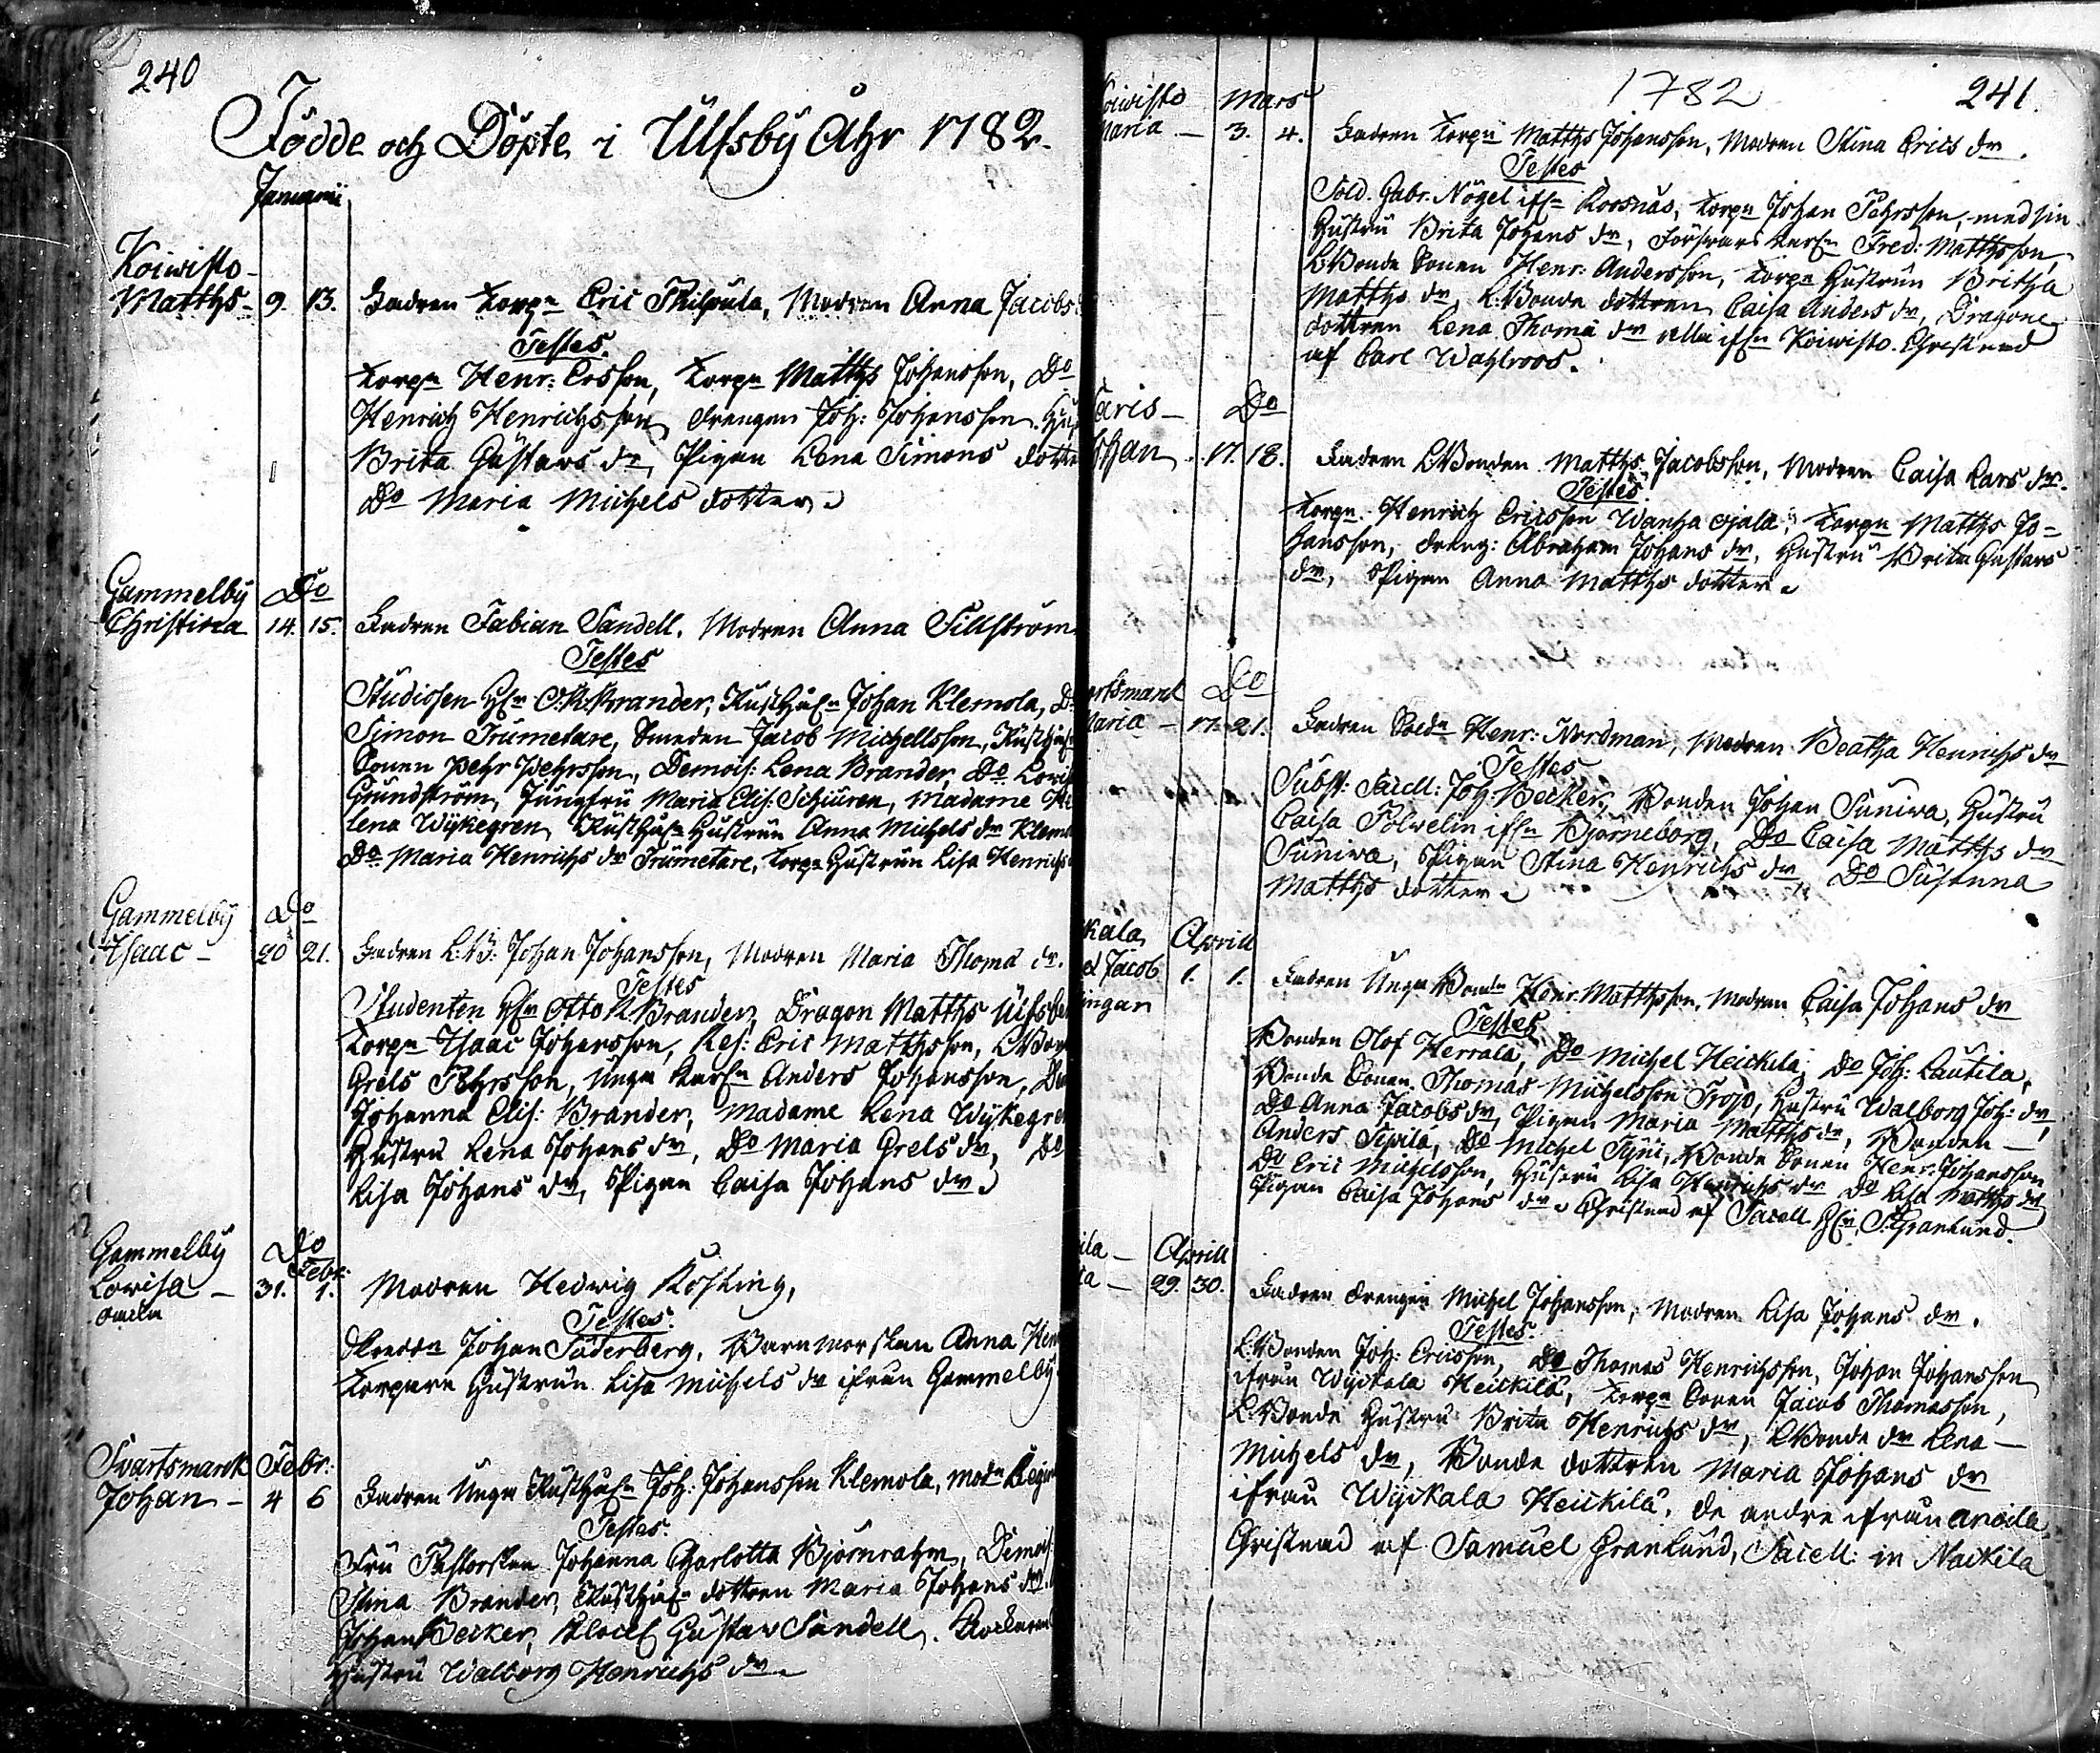 240
Födde och Döpte i Ulfsby Åhr 1782.
Januarii
Koivisto
Matths - 9. 13. Fadren Torpn Eric Thilpula, Modren Anna Jacobs
Testes.
Torpn Henr: Ersson, Torpn Matths Johansson, Do
Henrich Henrichsson, drengen Joh: Johansson, Hu
Brita Gustavs dr, Pigan Lena Simons dotte
Do Maria Michels dotter.
Gammelby Do
Christina 14. 15. Fadren Fabian Sandell. Modren Anna Sillström
Testes
Studiosen Hr O: K: Brander, Rusth: Johan Klemola, Do
Simon Trumetare, Smeden Jacob Michellsson, Rusth:
Sonen Pehr Pehrsson, Demois: Lena Brander, Do Lovis
Grundström, Jungfru Maria Elis: Schiüren, Madame He
lena Wykegren, Hustrun Anna Michels dr Klem
Do Maria Henrichs dr Trumetare, Torpn Hustrun Lisa Henrichs
Gammelby Do
Isaac - 20 21. Fadren L:B: Johan Johansson, Modren Maria Thoma dr.
Testes
Studenten Hr Otto K Brander, Dragon Matths Ulfsbe
Torpn Isaac Johansson, Res: Eric Matthsson, LBon
Grels Pehrsson, Unga Anders Johansson, De
Johanna Elis: Brander, Madame Lena Wykegre
Hustru Lena Johans dr, Do Maria Grels dr, Do
Lisa Johans dr, Pigan Caisa Johans dr.
Gammelby Do Febr:
Lovisa - 31. 1. Modren Hedwig Kosking,
Testes.
Johan Söderberg, Barnmorskan Anna Hen
Torpare Hustrun Lisa Michels dr ifrån Gammelby
Svartsmark Febr:
Johan - 4 6 Fadren Unga Joh: Johansson Klemola, Modn Regin
Testes.
Fru Pastorskan Johanna Charlotta Björnrahm, Demois:
Stina Brander, dottren Maria Johans dr.
Johan Becker, Gustav Sandell.
Hustru Walborg Henrichs dr
1782 241.
Koivisto Mars
Maria - 3. 4. Fadren Torpn Matths Johansson, Modren Stina Erics dr.
Testes
Sold. Gabr. Nögel Koosnäs, Torpn Johan Pehrsson, med sin
Hustru Brita Johans dr, Fred: Matthsson,
LBonde Sonen Henr: Andersson, Torpn Hustrun Britha
Matths dr, L:Bonde dottren Caisa Anders dr, Dragone
dottren Lena Thoma dr alla Koivisto. Christnad
af Carl Wahlroos.
aris - Do
ohan - 17. 18. Fadren LBonden Matths Jacobsson, Modren Caisa Lars dr.
Testes
Torpn Henrich Ericsson Wanha ojala, Torpn Matths Jo=
hansson, dreng: Abraham Johans dr, Hustru Brita Gustavs
dr, Pigan Anna Matths dotter.
artsmark Do
Maria - 17. 21. Fadren Soldn Henr: Nordman, Modren Beatha Henrichs dr
Testes
Subst: Sacell: Joh: Becker, Bonden Johan Suniva, Hustru
Caisa Polvelin Björneborg, Do Caisa Matths dr
Suniva, Pigan Stina Henrichs dr Do Susanna
Matths dotter
kala Aprill
Jacob 1. 1. Fadren Unga Bondn Henr: Matthsson, Modren Caisa Johans dr
lingar
Testes
Bonden Olof Herrala, Do Michel Heickilä, Do Joh: Lautila,
Bonde Sonen Thomas Michelsson Frosjo, Hustru Walborg Joh: dr,
Do Anna Jacobs dr, Pigan Maria Matths dr, Bonden -
Anders Sipilä, Do Michel Tyni, Bonde Sonen Henr: Johansson
Do Eric Michelsson, Hustru Lisa Henrichs dr Do Lisa Matths dr
Pigan Caisa Johans dr. Christnad af Sacell Hr S: Granlund.
ila - Aprill
ia - 29. 30. Fadren drengen Michel Johansson, Modren Lisa Johans dr.
Testes.
L:Bonden Joh: Ericsson, Do Thomas Henrichsson, Johan Johansson
ifrån Wyckala Heickilä, Torpn Sonen Jacob Thomasson,
LBonde Hustru Brita Henrichs dr, LBonde dr Lena -
Michels dr, Bonde dottren Maria Johans dr
ifrån Wyckala Heickilä, de andre ifrån anoila
Christnad af Samuel Granlund, Sacell: in Nackila